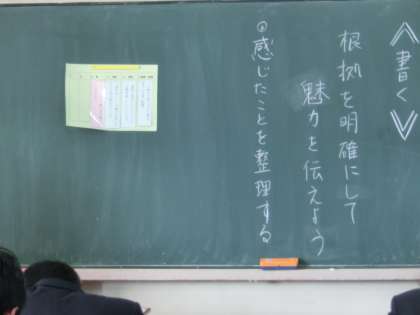 《書く》
根拠を明確にして
魅力を伝えよう
◎感じたことを整理する